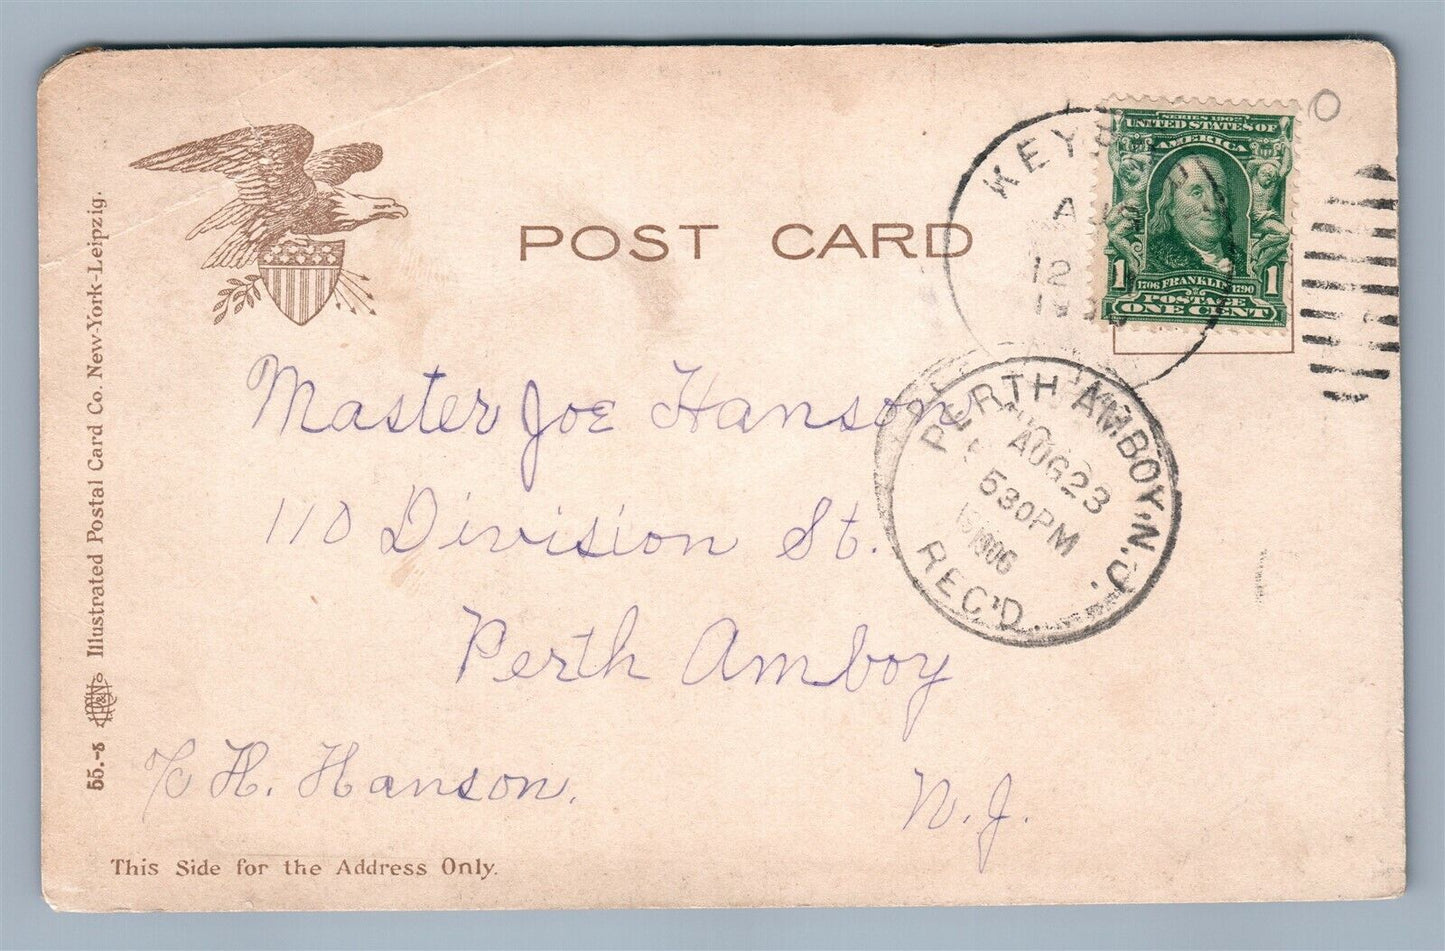 POST CARD
SERIES 1902
UNITED STATES OF
AMERICA
1 1
1706 FRANKLIN 1790
POSTAGE
ONE CENT
12
PERTH AMBOY, N.J.
AUG 23
530PM
1906
REC'D.
Master Joe Hanson
110 Division St.
Perth Amboy
N.J.
c/o H. Hanson.
This Side for the Address Only.
55.-8
Illustrated Postal Card Co. New-York-Leipzig.